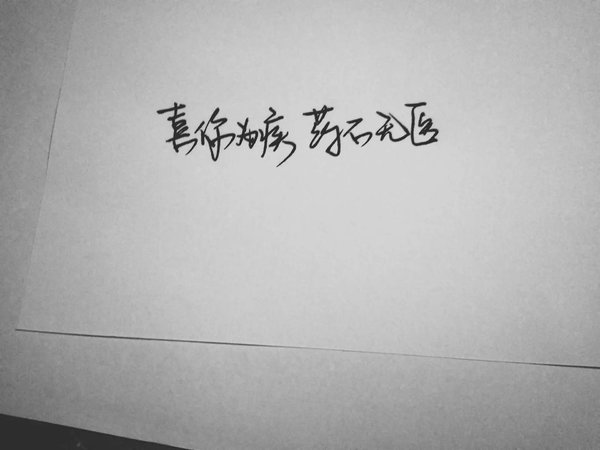 喜你为疾 药石无医